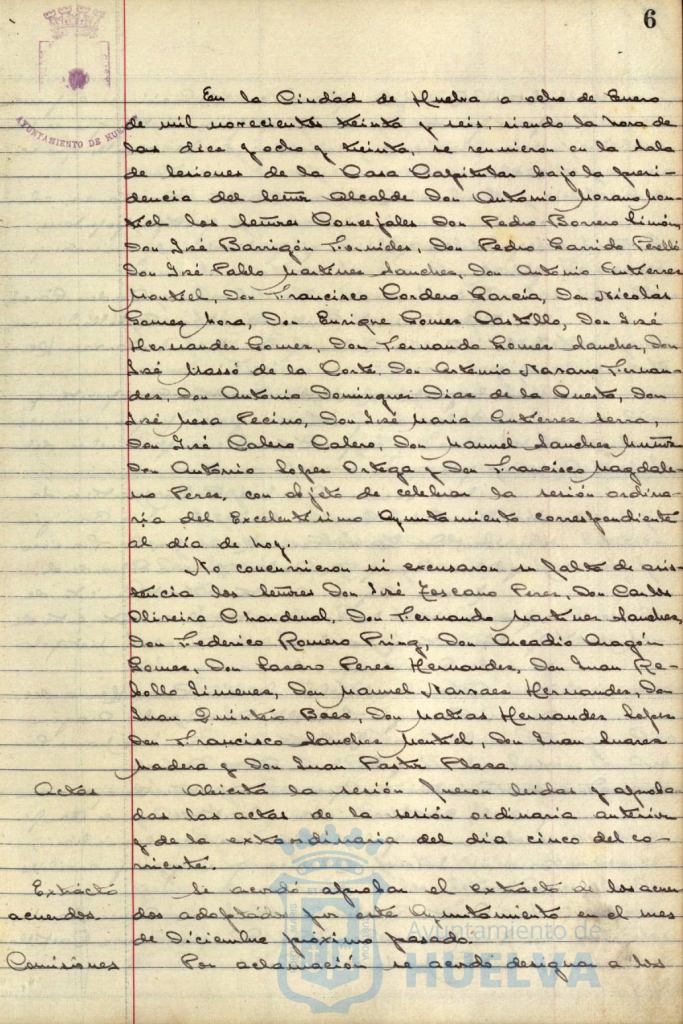 6
AYUNTAMIENTO DE HUELVA
En la Ciudad de Huelva a ocho de Enero
de mil novecientos treinta y seis, siendo la hora de
las diez y ocho y treinta, se reunieron en la Sala
de Sesiones de la Casa Capitular bajo la presi-
dencia del Señor Alcalde Don Antonio Morano Mon-
tiel los Señores Concejales Don Pedro Borrero Limón,
Don José Barrigón Fornieles, Don Pedro Garrido Perelló
Don José Pablo Martinez Sanchez, Don Antonio Gutierrez
Montiel, Don Francisco Cordero Garcia, Don Nicolás
Gomez Mora, Don Enrique Gomez Castillo, Don José
Hernandez Gomez, Don Fernando Gomez Sanchez, Don
José Massó de la Corte, Don Artemio Navarro Fernan-
dez, Don Antonio Dominguez Diaz de la Cuesta, Don
José Mesa Pecino, Don José Maria Gutierrez Serra,
Don José Calero Calero, Don Manuel Sanchez Muñoz
Don Antonio Lopez Ortega y Don Francisco Magdale-
no Perez, con objeto de celebrar la sesión ordina-
ria del Excelentisimo Ayuntamiento correspondiente
al día de hoy.
No concurrieron ni excusaron su falta de asis-
tencia los Señores Don José Toscano Perez, Don Carlos
Oliveira Chardenal, Don Fernando Martinez Sanchez,
Don Federico Romero Pring, Don Arcadio Aragón
Gomez, Don Lazaro Perez Hernandez, Don Juan Re-
bollo Jimenez, Don Manuel Narvaez Hernandez, Don
Juan Quintero Baez, Don Matias Hernandez Lopez
Don Francisco Sanchez Montiel, Don Juan Suarez
Madera y Don Juan Pastor Plaza.
Actas
Abierta la sesión fueron leidas y aproba-
das las actas de la sesión ordinaria anterior
y de la extraordinaria del dia cinco del co-
rriente.
Extracto
acuerdos.
Se acordó aprobar el extracto de los acuer-
dos adoptados por este Ayuntamiento en el mes
de Diciembre próximo pasado.
Comisiones
Por aclamación se acordó designar a los
Ayuntamiento de
HUELVA